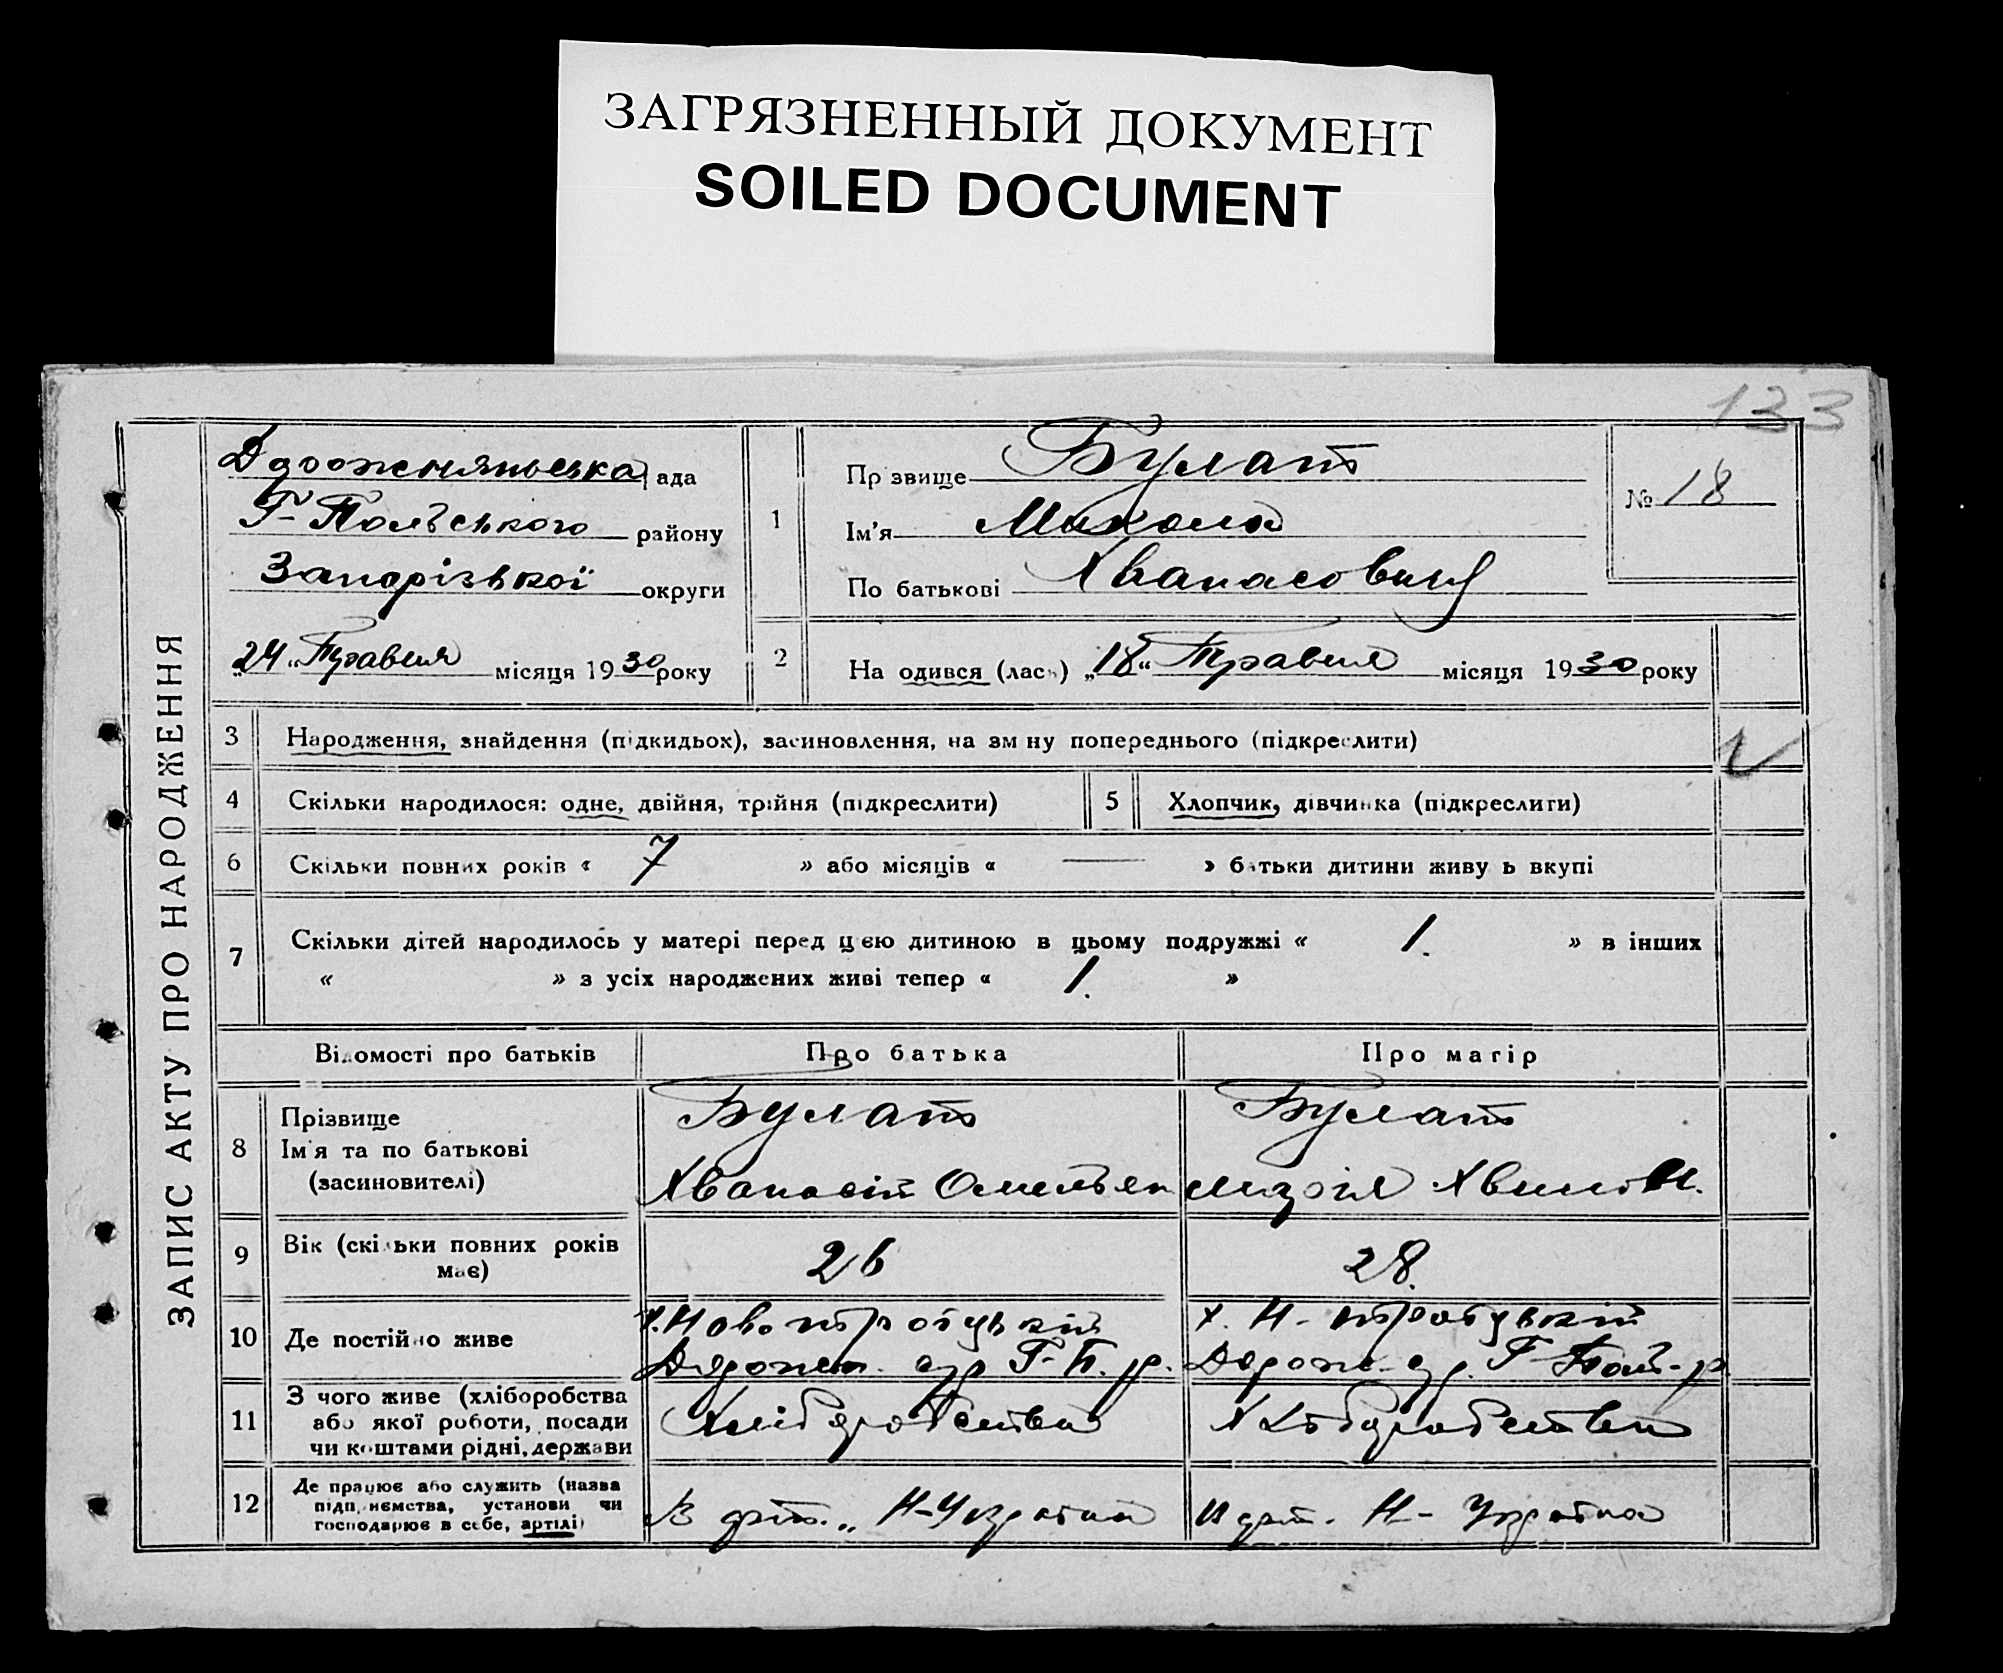 ЗАГРЯЗНЕННЫЙ ДОКУМЕНТ
SOILED DOCUMENT
133
ЗАПИС АКТУ ПРО НАРОДЖЕННЯ
рада
Г-Польського району
Запорізької округи
„24“ Травня місяця 1930 року
1
Прізвище Булат
Ім'я Микола
По батькові Хванасович
№ 18
2 На одився (лась) „18“ Травня місяця 1930 року
3 Народження, знайдення (підкидьох), засиновлення, на зміну попереднього (підкреслити)
4 Скільки народилося: одне, двійня, трійня (підкреслити)
5 Хлопчик, дівчинка (підкреслити)
6 Скільки повних років « 7 » або місяців « — » батьки дитини живуть вкупі
7 Скільки дітей народилось у матері перед цією дитиною в цьому подружжі « 1. » в інших
« » з усіх народжених живі тепер « 1. »
Відомості про батьків Про батька Про матір
8 Прізвище
Ім'я та по батькові
(засиновителі)
Булат
Хванасій Омельян
Булат
9 Вік (скільки повних років
має)
26
28.
10 Де постійно живе
Х. Новотроїцький
Г-П. р.
х. Н-троїцький
Г-Пол-р.
11 З чого живе (хліборобства
або якої роботи, посади
чи коштами рідні, держави
Хліборобства
Хліборобства
12 Де працює або служить (назва
підприємства, установи чи
господарює в себе, артілі)
В арт. „Н-Україна
В арт. Н-Україна